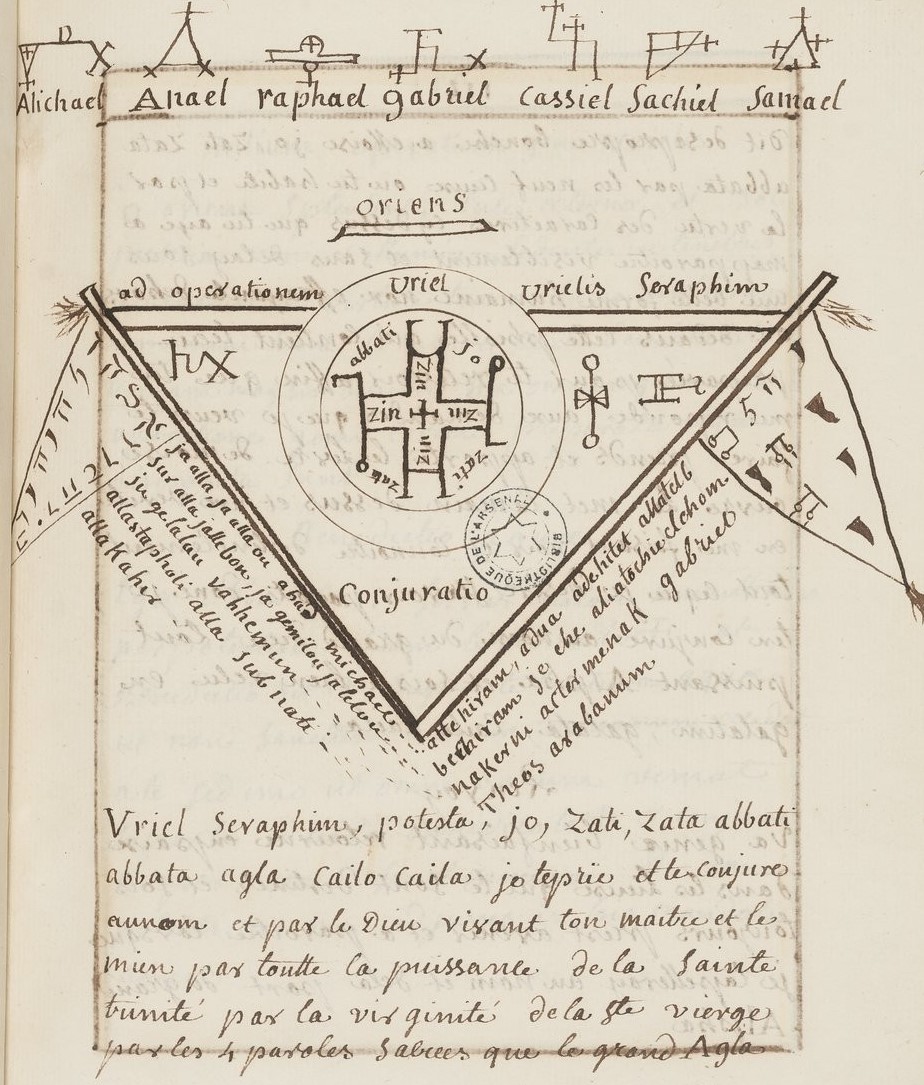 Michael Anael raphael gabriel cassiel Sachiel Samael
oriens
ad operationem Uriel Urielis Seraphim
abbati Jo
zin
zin zin
zin
zata zati
BIBLIOTHÈQUE DE L'ARSENAL
Conjuratio
ja alla, ja alla ou ahad michael
Sur alla jallebon ja gemilou jaldou
ju gelalou vahhemun
allastapholi alla Subnati
alla Kahir
attehiram, adua adehitet allatelb
berhiram je ehe aliatochie elchom
nakerni arter menak gabriel
Theos arabanum
Uriel Seraphim, potesta, jo, zati, zata abbati
abbata agla Cailo Caila je teprie et te Conjure
aunom et par le Dieu vivant ton maitre et le
mien par toutte la puissance de la Sainte
trinité par la virginité dela Ste vierge
par les 4 paroles Sabrees que le grand Agla